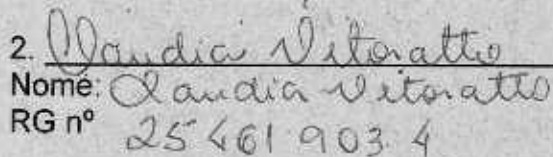 2. Claudia Vitoratto
Nome: Claudia Vitoratto
RG nº 25 461 903 4